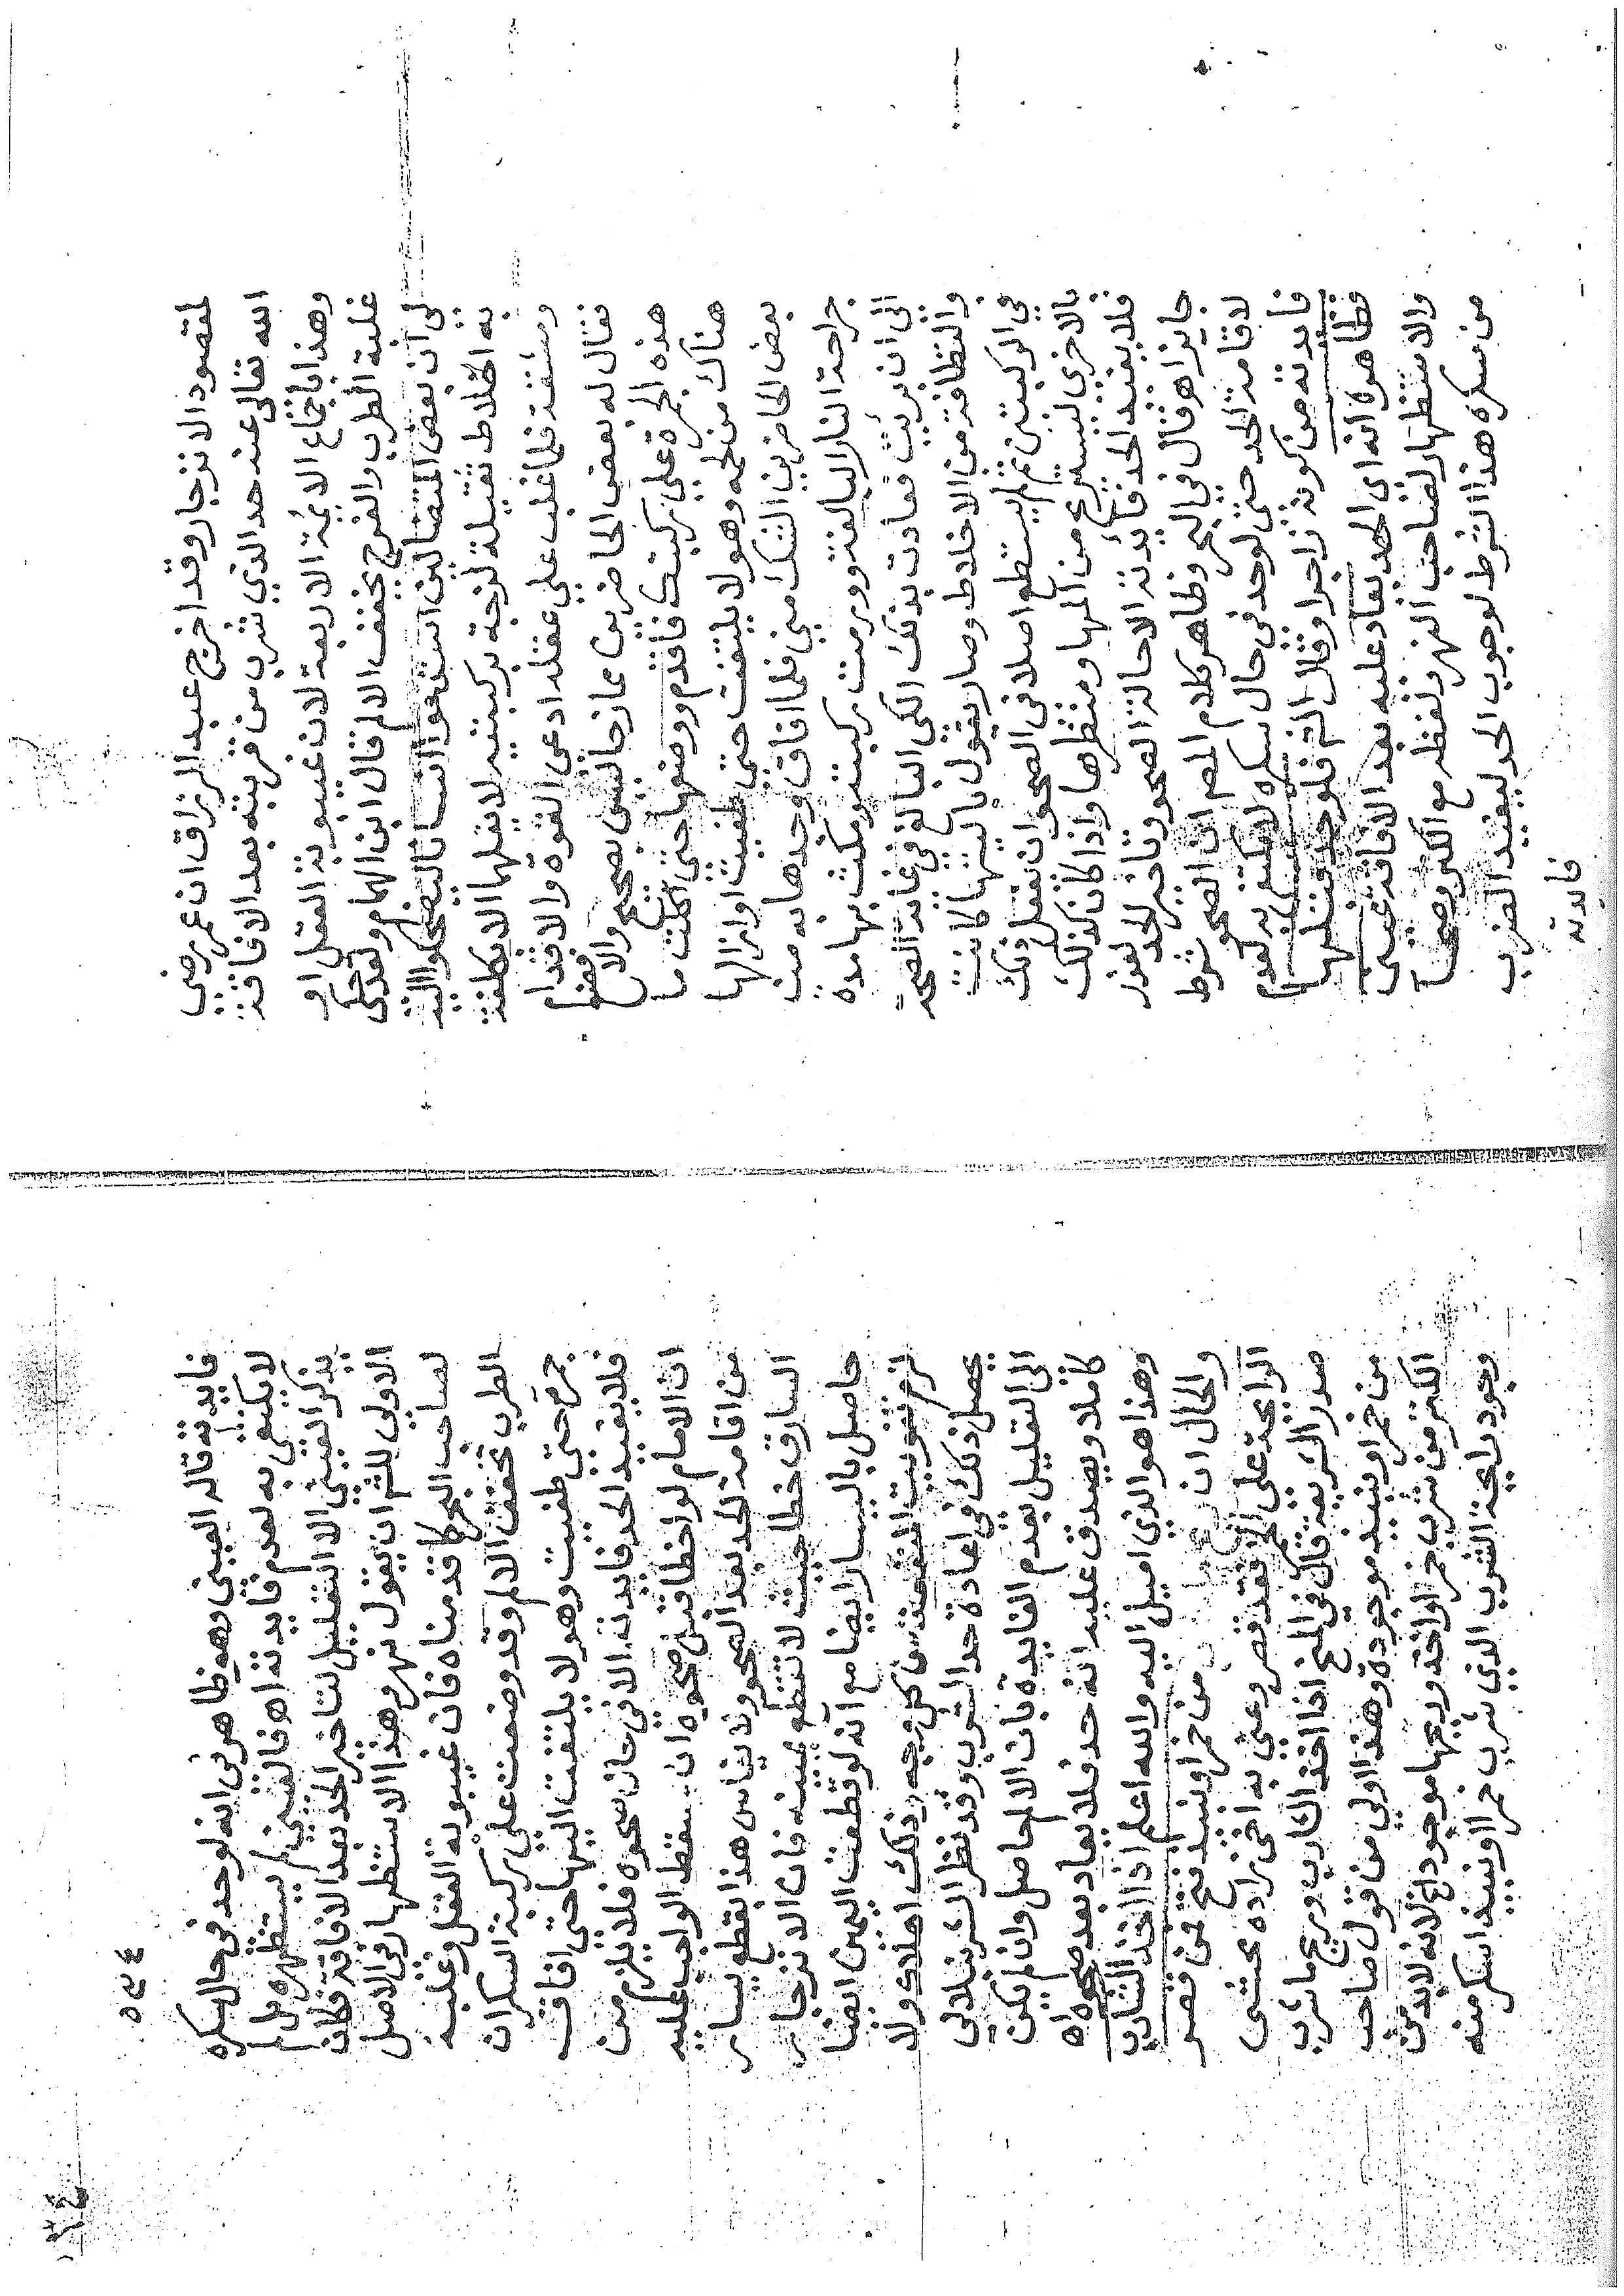 لمقصود الانزجار وقد اخرج عبد الرزاق ان عمر رضي
الله تعالى عنه حد الذي شرب من قربته بعد الافاقة
وهذا باجماع الايمة الاربعة لان غيبوبة العقل او
غلبة الطرب والفرح يخفف الالم قال ابن الهمام ولقد حكي
لي ان بعض المتصالين استدعوا انسانا ليضحكوا اليه
به اخلاط ثقيلة لزجة بركبتيه لايقلها الا بكلفة
ومشقة فلما غلب على عقله ادعى القوة والاقدام
فقال له بعض الحاضرين ممازحا ليس بصحيح والا فضع
هذه الجمرة على ركبتك فاقدم ووضعها حتى اكلت ما
هناك من لحمه وهو لا يلتفت حتى طفيت او ازالها
بعض الحاضرين الشك مني فلما افاق وجد ما به من
جراحة النار البالغة وورمت ركبته ومكث بها مدة
الى ان بريت فعادت بذلك الكي البالغ في غاية الصحة
والنظافة من الاخلاط وصار يقول يا ليتها كانت
في الركبتين ثم لم يستطع اصلا في الصحو ان يفعل ذلك
بالاخرى ليستريح من المها ومنظرها واذا كان كذلك
فلا يفيد الحد فايدته الا حالة الصحو وتاخير الحد لعذر
جايز اه قال في البحر وظاهر كلام المص ان الصحو شرط
لاقامة الحد حتى لو حد في حال سكره لايكتفي به لعدم
فايدته من كونه زاجرا وقال الشم فلو حد قبلها
فظاهره انه اي الحد يعاد عليه بعد الافاقة عيني
والاستظهار لصاحب النهر ونظر مع الكبر وصحا
من سكره هذا الشرط لوجوب الحد ليفيد الضرب
فايدته
٥٣٤
فايدته قاله العيني وهو ظاهر في انه لو حد في حال سكره
لا يكتفى به لعدم فايدته اه فالعيني لم يستظهره بل لم
يذكر العيني الا التعليل لتاخير الحد بعد الافاقة فكان
الاولى للشم ان يقول نهر وهذا الاستظهار في الاصل
لصاحب البحر كما قدمناه فان غيبوبة العقل وغلبة
الطرب تخفف الالم وقد وضعت على ركبة السكران
جمرة حتى طفيت وهو لا يلتفت اليها حتى افاق
فلا يفيد الحد فايدته الا في حال صحوه فلا يلزم من
ان الامام لو اخطا قبل صحوه ان يسقط الواجب عليه
من اقامة الحد بعد الصحو ولا يقاس هذا بقطع يسار
السارق خطا حيث لا تقطع يمينه فان الانزجار
حاصل باليسار ايضا مع انه لو قطعت اليمين ايضا
لزم تفويت المنفعة من كل وجه وذلك اهلاك ولا
يحصل ذلك في اعادة حد الشرب وقد نظر الشرنبلالي
الى التعليل بعدم الفايدة بان الالم حاصل وان لم يكن
كاملا ويصدق عليه انه حد فلا يعاد بعد صحوه اه
وهذا هو الذي اميل اليه والله اعلم اذا اخذ الشارب
والحال ان ريح ما شرب من خمر او نبيذ نتج فمن قصر
الرايحة على الخمر فقد قصر وعنى به اخي زاده محشي
صدر الشريعة قال في المنح اذا اخذ الشارب وريح ما شرب
من خمر او نبيذ موجودة وهذا اولى من قول صاحب
الكنز من شرب خمر او اخذ وريحها موجود اع لانه لابد من
وجود رايحة الشرب الذي شرب خمرا او نبيذا سكر منه